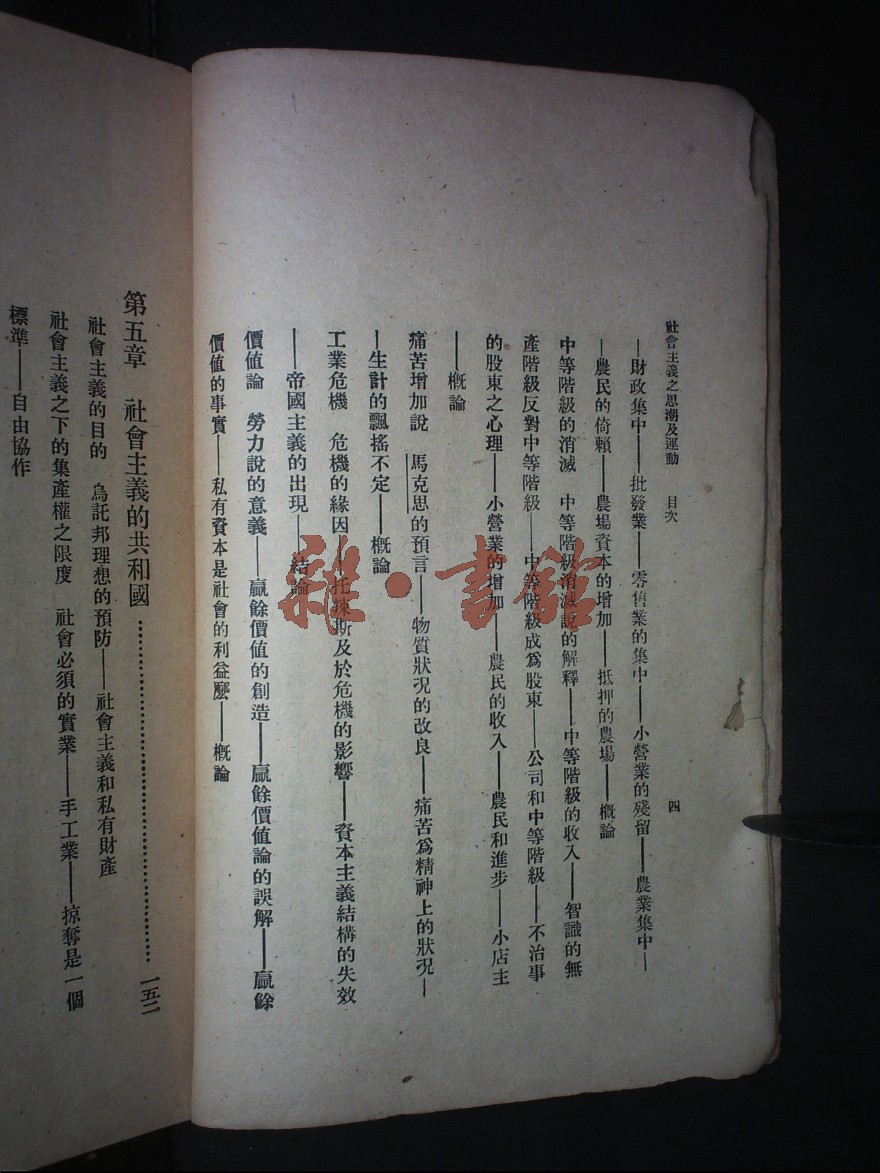 社會主義之思潮及運動 目次 四
—財政集中——批發業——零售業的集中——小營業的殘留——農業集中—
—農民的倚賴——農場資本的增加——抵押的農場——概論
中等階級的消滅 中等階級消滅說的解釋——中等階級的收入——智識的無
產階級反對中等階級——中等階級成爲股東——公司和中等階級——不治事
的股東之心理——小營業的增加——農民的收入——農民和進步——小店主
——概論
痛苦增加說 馬克思的預言——物質狀況的改良——痛苦爲精神上的狀況—
—生計的飄搖不定——概論
工業危機 危機的緣因——托辣斯及於危機的影響——資本主義結構的失效
——帝國主義的出現——結論
價値論 勞力說的意義——贏餘價値的創造——贏餘價値論的誤解——贏餘
價値的事實——私有資本是社會的利益麽——概論
第五章 社會主義的共和國……………………………………一五二
社會主義的目的 烏託邦理想的預防——社會主義和私有財產
社會主義之下的集產權之限度 社會必須的實業——手工業——掠奪是一個
標準——自由協作
雜·書館